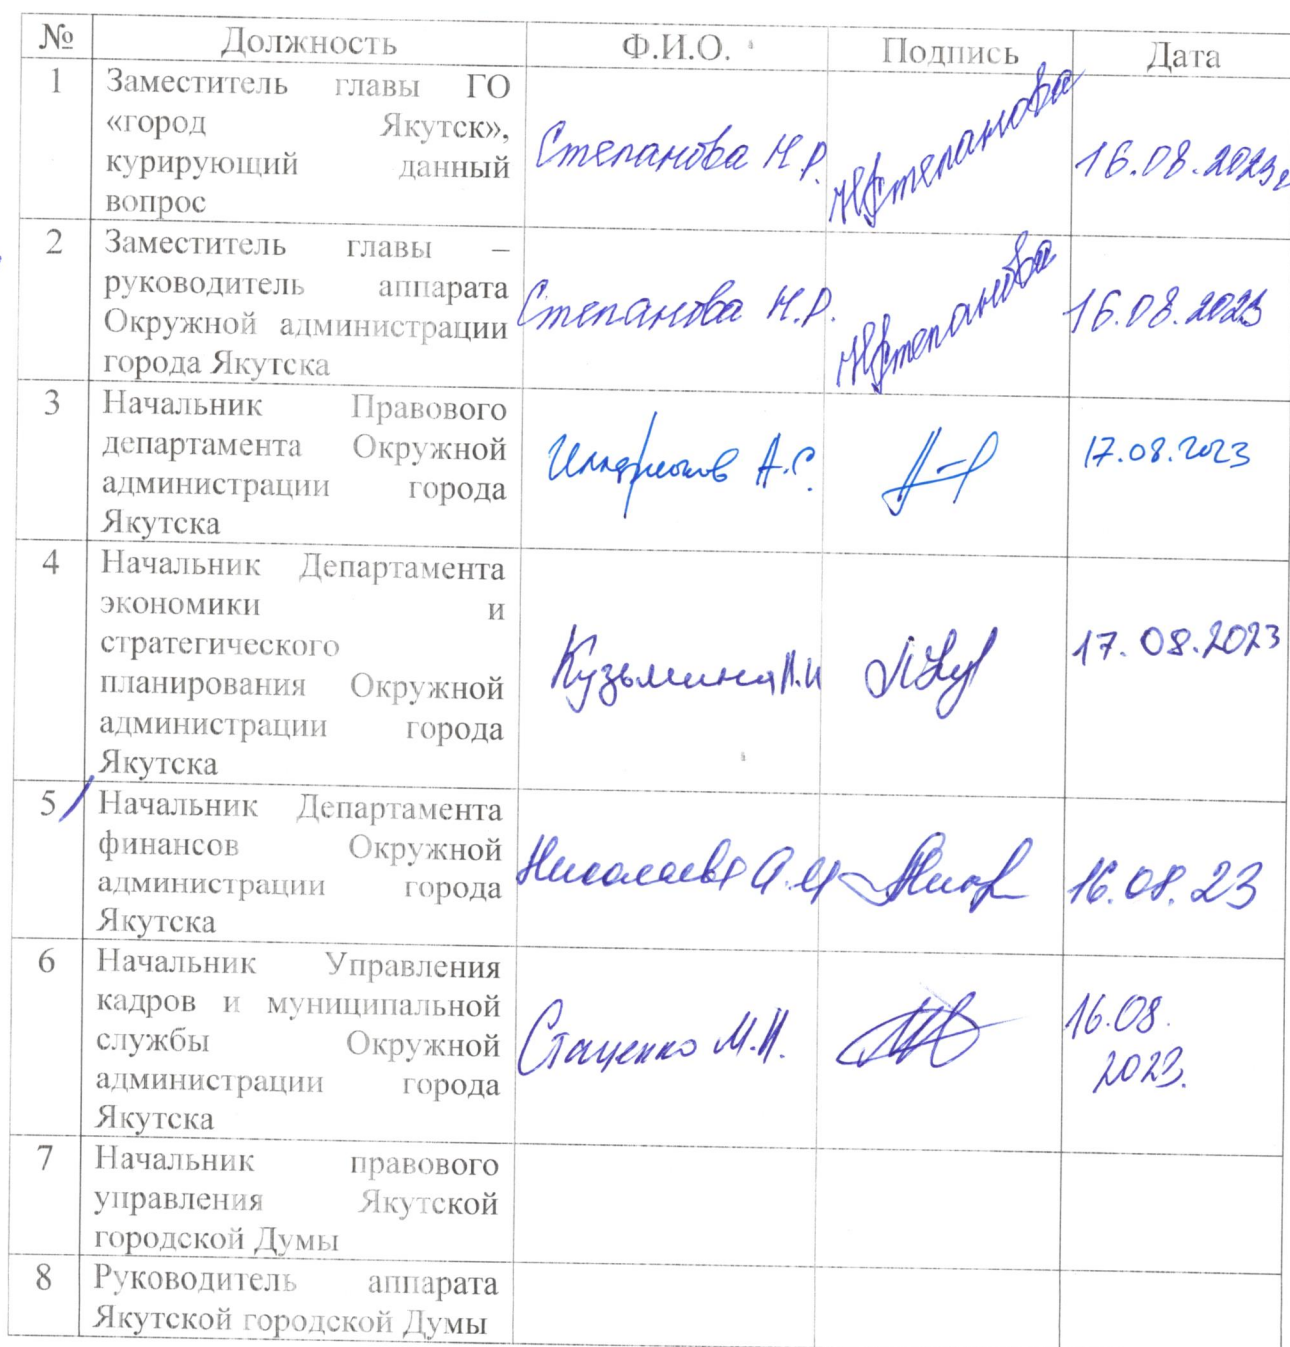 № Должность Ф.И.О. Подпись Дата
1 Заместитель главы ГО
«город Якутск»,
курирующий данный
вопрос
Степанова Н.Р. НСтепанова 16.08.2023г
2 Заместитель главы –
руководитель аппарата
Окружной администрации
города Якутска
Степанова Н.Р. НСтепанова 16.08.2023
3 Начальник Правового
департамента Окружной
администрации города
Якутска
А.С. 17.08.2023
4 Начальник Департамента
экономики и
стратегического
планирования Окружной
администрации города
Якутска
Кузьмина 17.08.2023
5 Начальник Департамента
финансов Окружной
администрации города
Якутска
Николаева А.И. 16.08.23
6 Начальник Управления
кадров и муниципальной
службы Окружной
администрации города
Якутска
Стаценко М.И. 16.08.
2023.
7 Начальник правового
управления Якутской
городской Думы
8 Руководитель аппарата
Якутской городской Думы